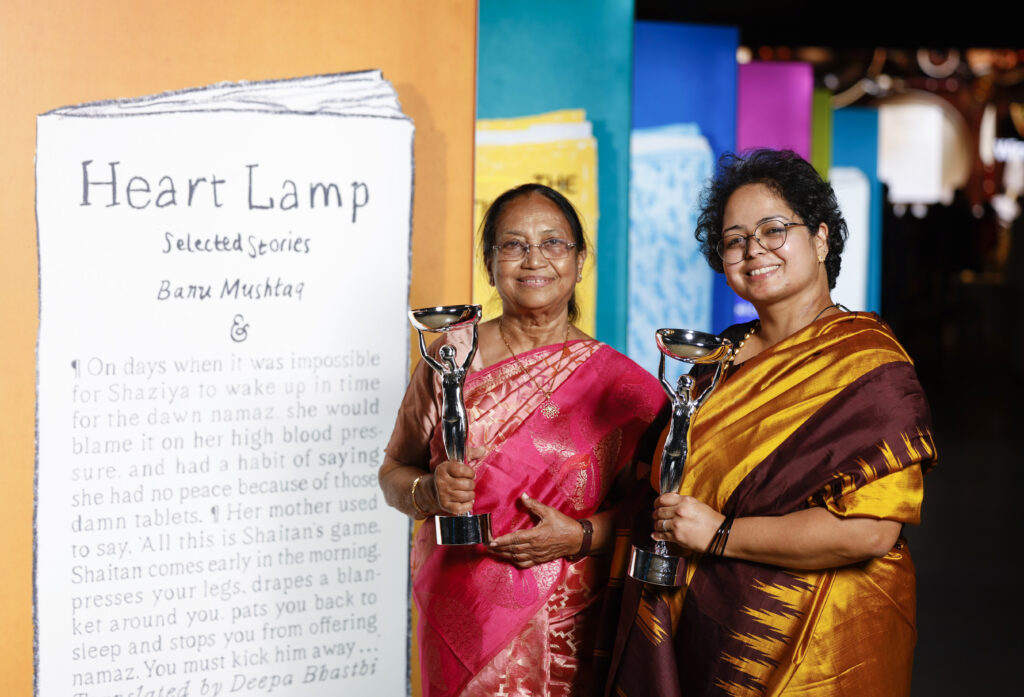 Heart Lamp
Selected Stories
Banu Mushtaq
&
¶ On days when it was impossible
for Shaziya to wake up in time
for the dawn namaz, she would
blame it on her high blood pres-
sure, and had a habit of saying
she had no peace because of those
damn tablets. ¶ Her mother used
to say, 'All this is Shaitan's game.
Shaitan comes early in the morning,
presses your legs, drapes a blan-
ket around you, pats you back to
sleep and stops you from offering
namaz. You must kick him away ...
Translated by Deepa Bhasthi
THE